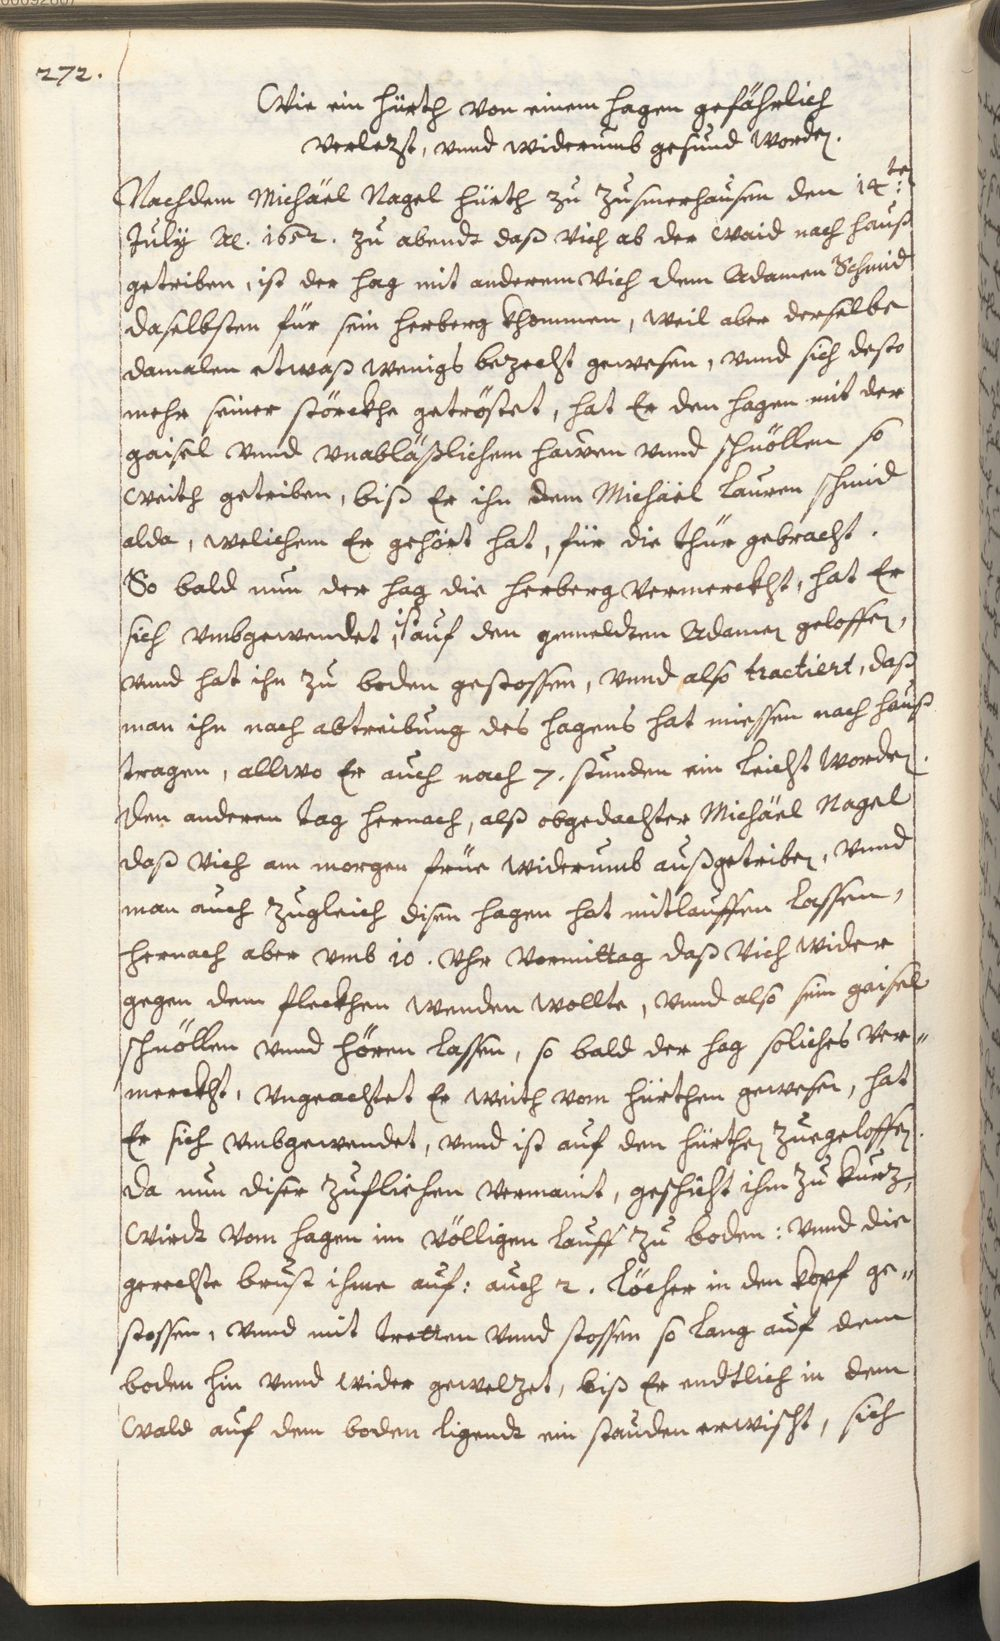 272.
Wie ein hürth von einem hagen gefährlich
verletzt, vnnd widerumb gesund worden.
Nachdem Michäel Nagel hürth zu Zusmerhausen den 14.ten
July Ao. 1652. zu abendt daß Vich ab der Waid nach hauß
getriben, ist der hag mit anderem Vich dem Adamen Schmid
daselbsten für sein herberg khommen, weil aber derselbe
damalen etwaß wenigs bezecht gewesen, vnnd sich desto
mehr seiner störckhe getröstet, hat Er den hagen mit der
gaisel vnnd vnabläßlichem hawen vnnd schnöllen so
weith getriben, biß Er ihn dem Michäel Lauren schmid
alda, welichem Er gehört hat, für die thür gebracht.
So bald nun der hag die herberg vermerckht, hat Er
sich vmbgewendet, ist auf den gemeldten Adamen geloffen,
vnnd hat ihn zu boden gestossen, vnnd also tractiert, daß
man ihn nach abtreibung des hagens hat miessen nach hauß
tragen, allwo Er auch nach 7. stunden ein leicht worden.
Den anderen tag hernach, alß obgedachter Michäel Nagel
daß Vich am morgen früe widerumb außgetriben, vnnd
man auch zugleich disen hagen hat mitlauffen lassen,
hernach aber vmb 10. Vhr Vormittag daß Vich wider
gegen dem fleckhen wenden wollte, vnnd also sein gaisel
schnöllen vnnd hören lassen, so bald der hag soliches ver-
merckht, vngeachtet Er weith vom hürthen gewesen, hat
Er sich vmbgewendet, vnnd ist auf den hürthen zuegeloffen.
da nun diser zufliehen vermaint, geschicht ihm zu kurz,
Wirdt vom hagen im völligen lauff zu boden: vnnd die
gerechte brust ihme auf: auch 2. löcher in den kopf ge-
stossen, vnnd mit tretten vnnd stossen so lang auf dem
boden hin vnnd wider gewelzet, biß Er endtlich in dem
Wald auf dem boden ligendt ein stauden erwischt, sich